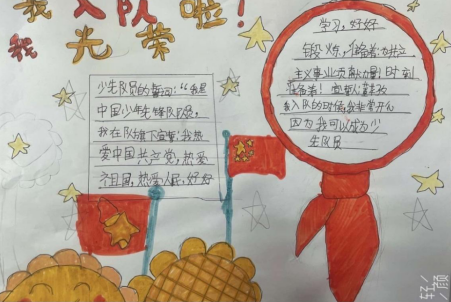 我入队啦！
我光荣
少先队员的誓词：“我是
中国少年先锋队队员，
我在队旗下宣誓：我热
爱中国共产党，热爱
祖国，热爱人民，好好
学习，好好
锻炼，准备着：为共产
主义事业贡献力量！时刻
准备着！宣誓人
入队的时候我非常开心
因为我可以成为少
先队员
轻颜